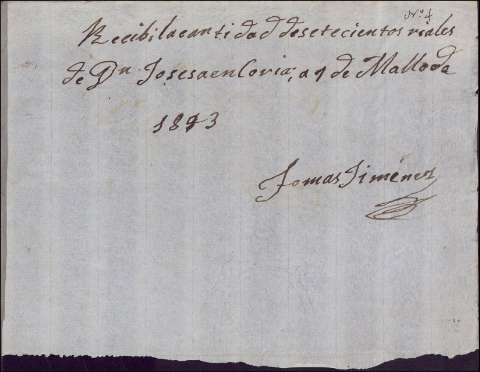 Nº 4
Recibi la cantidad de setecientos reales
de Dn Jose saenCoria, a 9 de Mallo de
1843
Tomas Jimenez